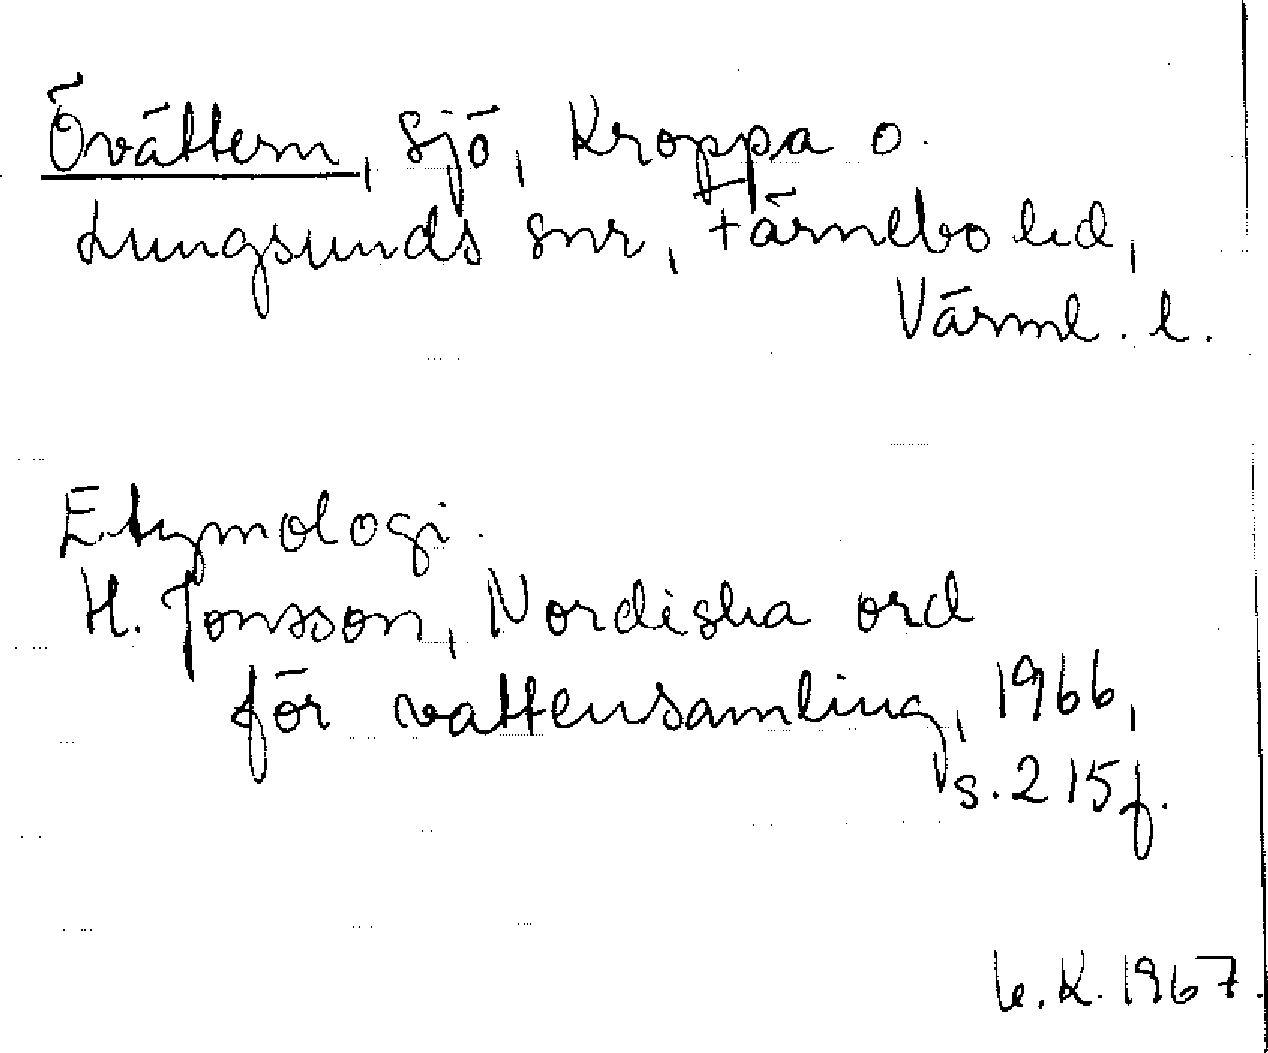 Övättern, sjö, Kroppa o.
Lungsunds snr, Färnebo hd,
Värml. l.
Etymologi.
H. Jonsson, Nordiska ord
för vattensamling, 1966,
s. 215f.
K. 1967.